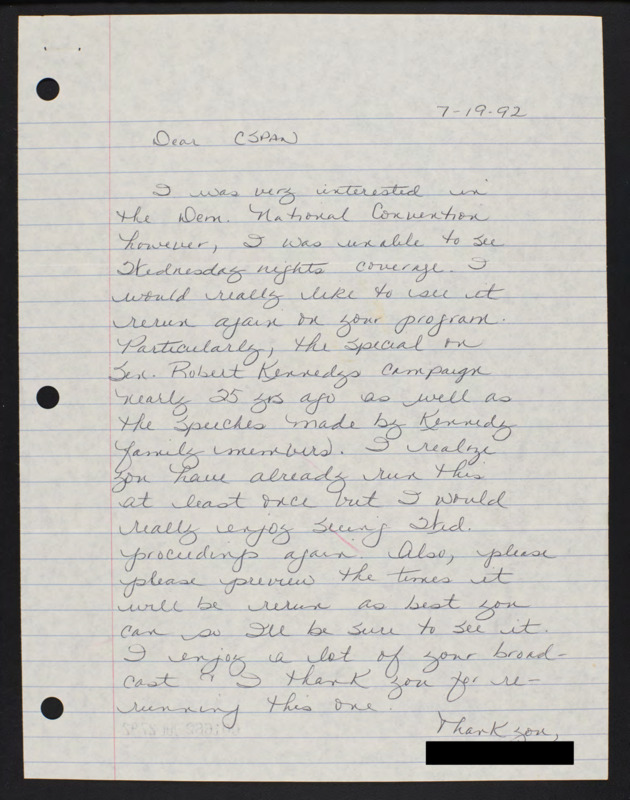 7-19-92
Dear CSPAN
I was very interested in
the Dem. National Convention
however, I was unable to see
Wednesday nights coverage. I
would really like to see it
rerun again on your program.
Particularly, the special on
Sen. Robert Kennedys campaign
nearly 25 yrs ago as well as
the speeches made by Kennedy
family members. I realize
you have already run this
at least once but I would
really enjoy seeing Wed.
proceedings again. Also, please
please preview the times it
will be rerun as best you
can so I'll be sure to see it.
I enjoy a lot of your broad-
cast " I thank you for re-
running this one.
Thank you,